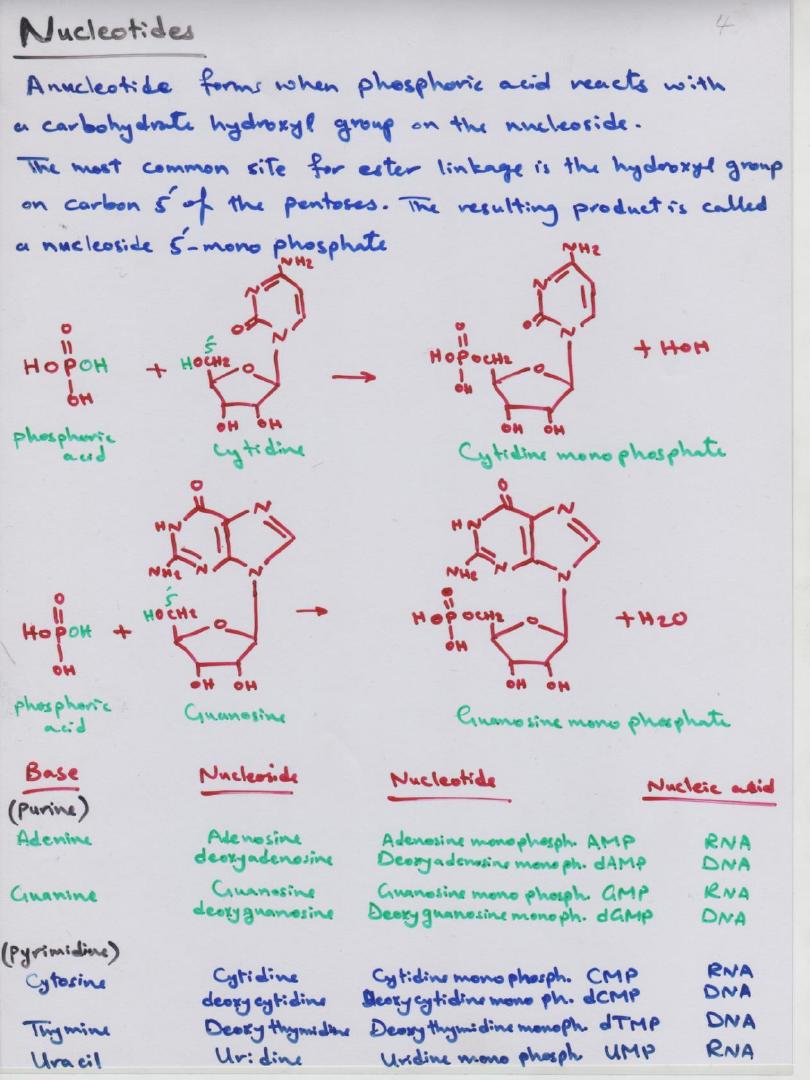 Nucleotides
4
A nucleotide forms when phosphoric acid reacts with
a carbohydrate hydroxyl group on the nucleoside.
The most common site for ester linkage is the hydroxyl group
on carbon 5′ of the pentoses. The resulting product is called
a nucleoside 5′-mono phosphate
NH2 NH2
N N
O N O N
O HOPOH OH + 5′ HOCH2 O OH OH → O HOPOCH2 OH O OH OH + HOH
phosphoric acid Cytidine Cytidine mono phosphate
O N O N
HN HN
NH2 N N NH2 N N
O HOPOH OH + 5′ HOCH2 O OH OH → O HOPOCH2 OH O OH OH + H2O
phosphoric acid Guanosine Guanosine mono phosphate
Base Nucleoside Nucleotide Nucleic acid
(Purine)
Adenine Adenosine Adenosine monophosph. AMP RNA
deoxyadenosine Deoxyadenosine monoph. dAMP DNA
Guanine Guanosine Guanosine mono phosph. GMP RNA
deoxyguanosine Deoxyguanosine monoph. dGMP DNA
(Pyrimidine)
Cytosine Cytidine Cytidine mono phosph. CMP RNA
deoxycytidine Deoxycytidine mono ph. dCMP DNA
Thymine Deoxythymidine Deoxythymidine monoph. dTMP DNA
Uracil Uridine Uridine mono phosph UMP RNA